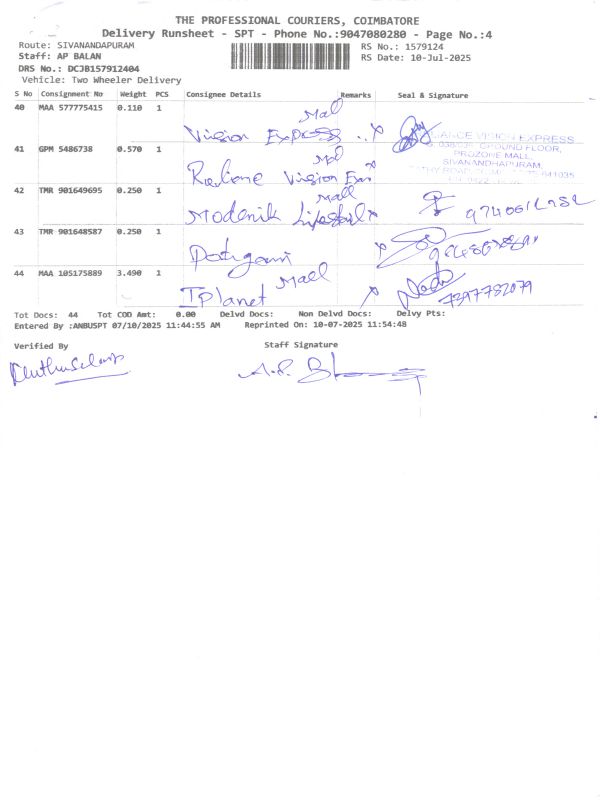 THE PROFESSIONAL COURIERS, COIMBATORE
Delivery Runsheet - SPT - Phone No.:9047080280 - Page No.:4
Route: SIVANANDAPURAM
RS No.: 1579124
Staff: AP BALAN
RS Date: 10-Jul-2025
DRS No.: DCJB157912404
Vehicle: Two Wheeler Delivery
S No Consignment No Weight PCS Consignee Details Remarks Seal & Signature
Mall
40 MAA 577775415 0.110 1
Vision Express
VISION EXPRESS
GROUND FLOOR,
PROZONE MALL,
SIVANANDHAPURAM,
41 GPM 5486738 0.570 1
Mall
Vision
42 TMR 901649695 0.250 1
Mall
43 TMR 901648587 0.250 1
44 MAA 105175889 3.490 1
Mall
IPlanet
7397732079
Tot Docs: 44 Tot COD Amt: 0.00 Delvd Docs: Non Delvd Docs: Delvy Pts:
Entered By :ANBUSPT 07/10/2025 11:44:55 AM Reprinted On: 10-07-2025 11:54:48
Verified By Staff Signature